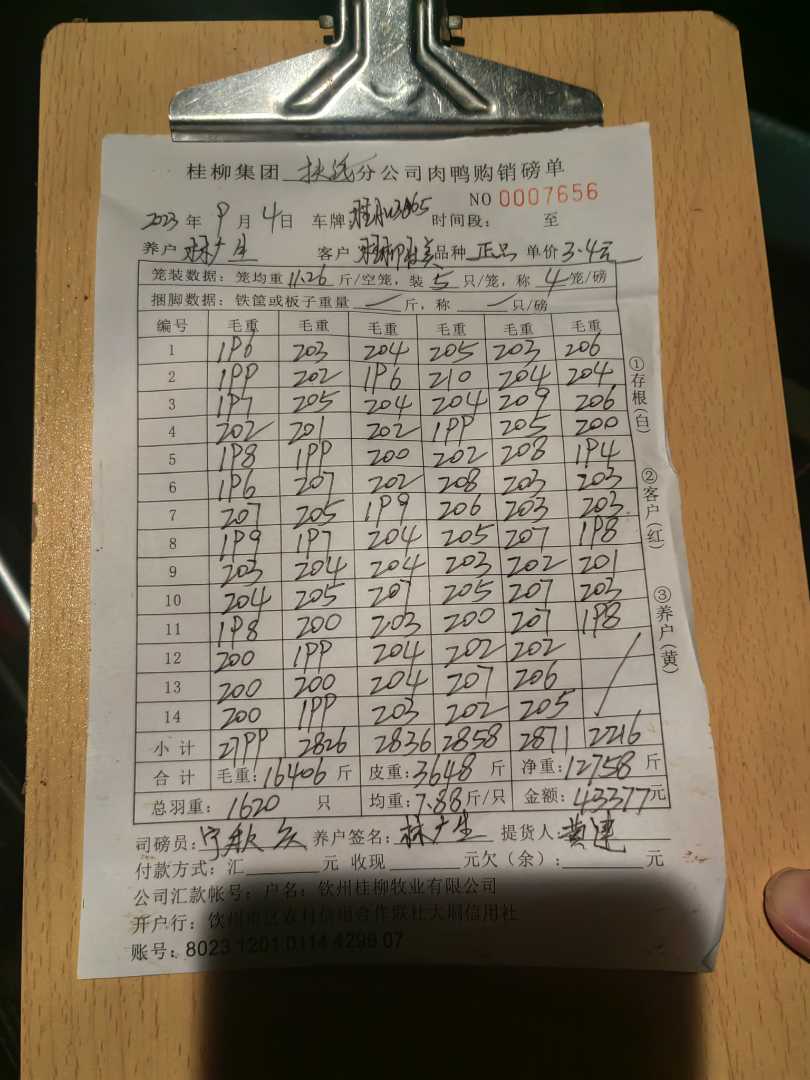 桂柳集团 扶绥 分公司肉鸭购销磅单
NO 0007656
2023 年 9 月 4 日 车牌: 时间段: 至
养户 林广生 客户 品种 正品 单价 3.4元
笼装数据: 笼均重 11.26 斤/空笼, 装 5 只/笼, 称 4 笼/磅
捆脚数据: 铁筐或板子重量 / 斤, 称 / 只/磅
编号 毛重 毛重 毛重 毛重 毛重 毛重
1 196 203 204 205 203 206
2 199 202 196 210 204 204
3 197 205 204 204 209 206
4 202 201 202 199 205 200
5 198 199 200 202 208 194
6 196 207 202 208 203 203
7 207 205 199 206 203 203
8 199 197 204 205 207 198
9 203 204 204 203 202 201
10 204 205 207 205 207 203
11 198 200 203 200 207 198
12 200 199 204 202 202
13 200 200 204 207 206
14 200 199 203 202 205
小计 2799 2826 2836 2858 2871 2216
合计 毛重: 16406 斤 皮重: 3648 斤 净重: 12758 斤
总羽重: 1620 只 均重: 7.88 斤/只 金额: 43377 元
司磅员: 养户签名: 林广生 提货人: 黄建
付款方式: 汇 元 收现 元欠(余): 元
公司汇款帐号: 户名: 钦州桂柳牧业有限公司
开户行: 钦州市区农村信用合作联社大垌信用社
账号: 8023 1201 0114 4296 07
①存根(白)
②客户(红)
③养户(黄)